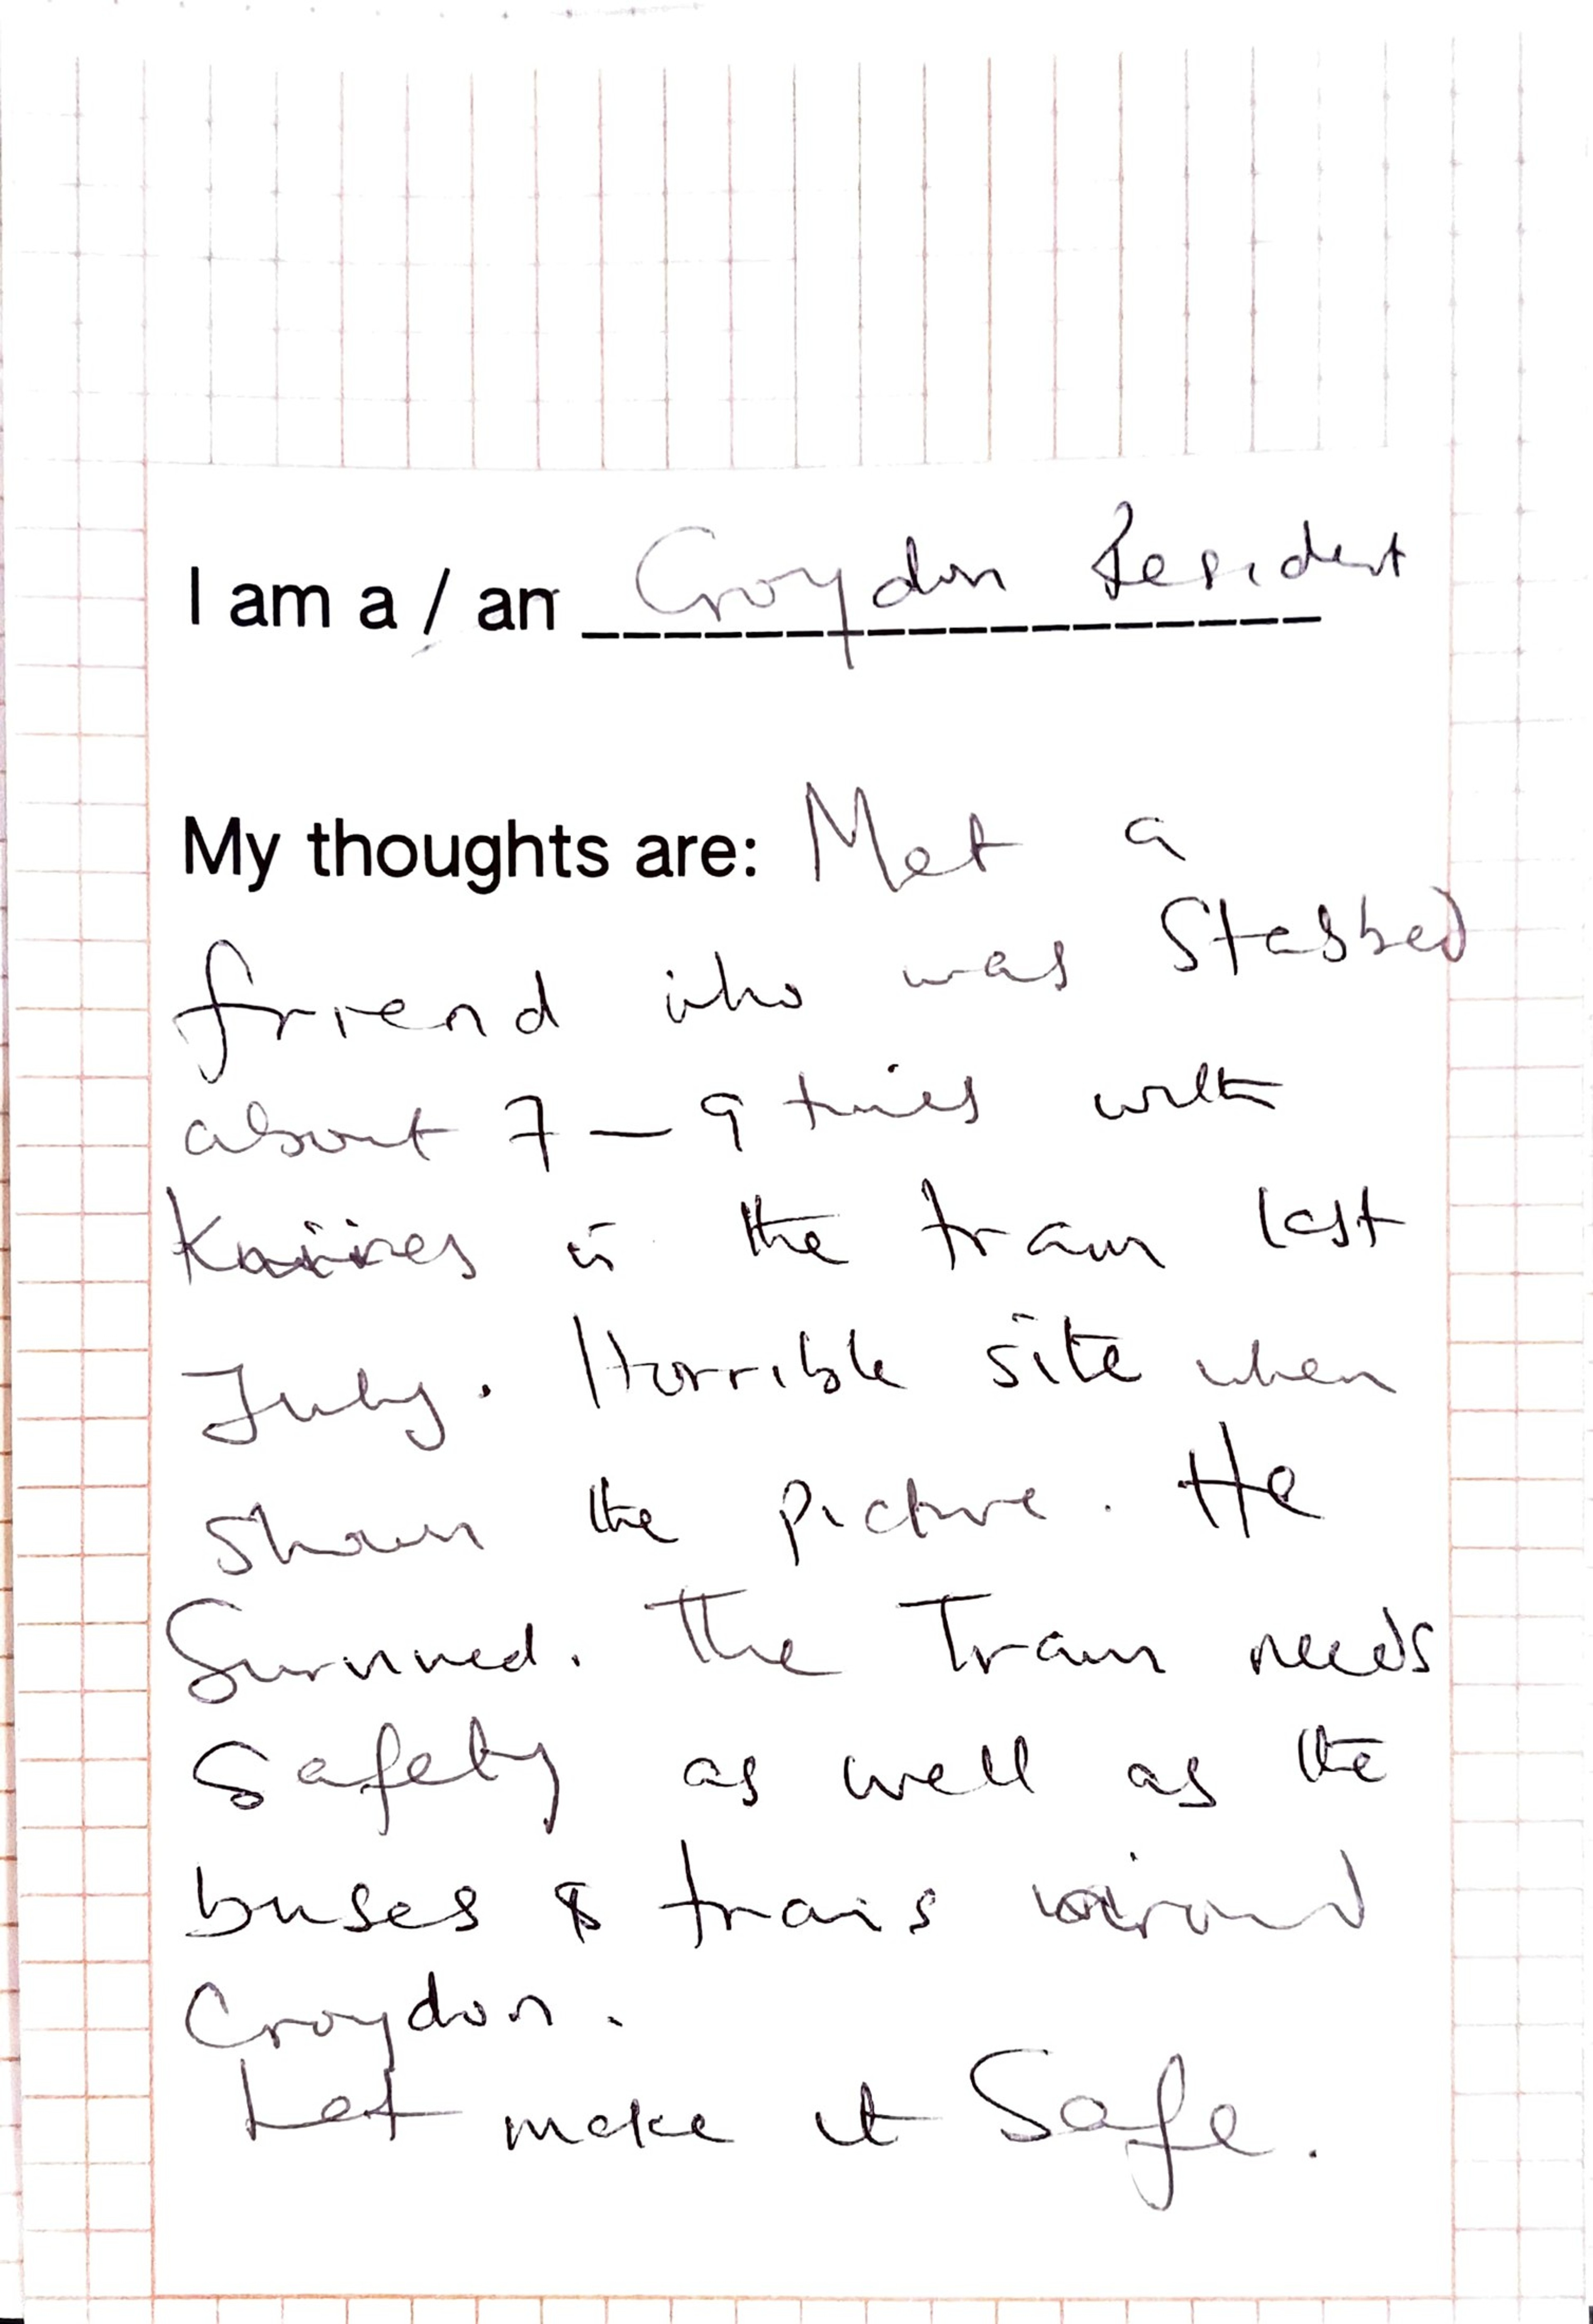 I am a / an Croydon Resident
My thoughts are: Met a
friend who was Stabbed
about 7 – 9 times with
Knives in the tram last
July. Horrible site when
shown the picture. He
Survived. The Tram needs
Safety as well as the
buses & trains around
Croydon.
Let make it Safe.